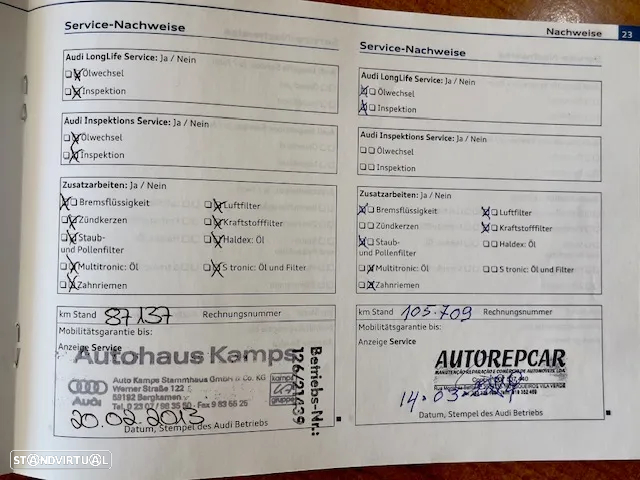 Nachweise 23
Service-Nachweise
Audi LongLife Service: Ja / Nein
Ölwechsel
Inspektion
Audi Inspektions Service: Ja / Nein
Ölwechsel
Inspektion
Zusatzarbeiten: Ja / Nein
Bremsflüssigkeit
Luftfilter
Zündkerzen
Kraftstofffilter
Staub-
und Pollenfilter
Haldex: Öl
Multitronic: Öl
S tronic: Öl und Filter
Zahnriemen
km Stand 87137 Rechnungsnummer
Mobilitätsgarantie bis:
Anzeige Service
Autohaus Kamps
Auto Kamps Stammhaus GmbH & Co. KG
Werner Straße 122
59192 Bergkamen
Audi
kamps
gruppe
Betriebs-Nr.:
126/21439
20.02.2013
Datum, Stempel des Audi Betriebs
Service-Nachweise
Audi LongLife Service: Ja / Nein
Ölwechsel
Inspektion
Audi Inspektions Service: Ja / Nein
Ölwechsel
Inspektion
Zusatzarbeiten: Ja / Nein
Bremsflüssigkeit
Luftfilter
Zündkerzen
Kraftstofffilter
Staub-
und Pollenfilter
Haldex: Öl
Multitronic: Öl
S tronic: Öl und Filter
Zahnriemen
km Stand 105.709 Rechnungsnummer
Mobilitätsgarantie bis:
Anzeige Service
AUTOREPCAR
14.03
Datum, Stempel des Audi Betriebs
STANDVIRTUAL